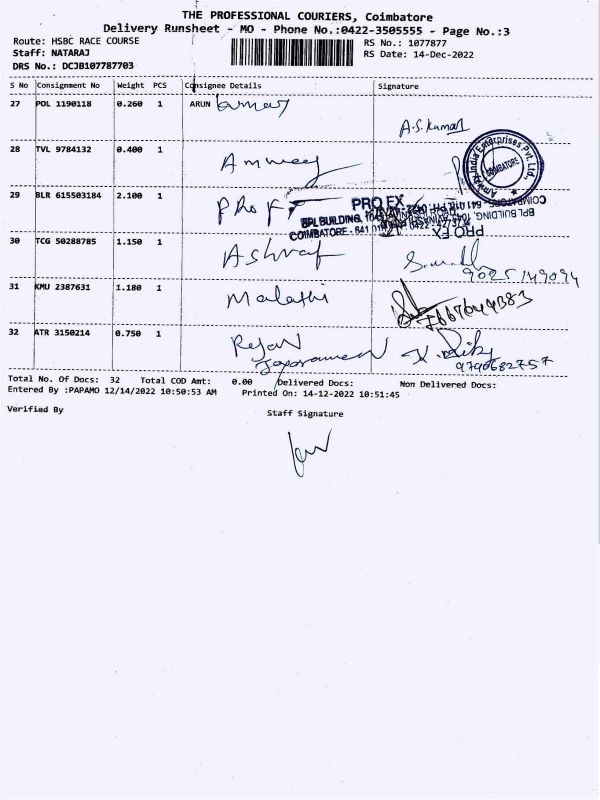 THE PROFESSIONAL COURIERS, Coimbatore
Delivery Runsheet - MO - Phone No.:0422-3505555 - Page No.:3
Route: HSBC RACE COURSE RS No.: 1077877
Staff: NATARAJ RS Date: 14-Dec-2022
DRS No.: DCJB107787703
S No Consignment No Weight PCS Consignee Details Signature
27 POL 1190118 0.260 1 ARUN
A.S.Kumar
28 TVL 9784132 0.400 1 Amway
Amway India Enterprises Pvt. Ltd.
COIMBATORE
29 BLR 615503184 2.100 1 Pro FX
PRO FX
BPL BUILDING,
COIMBATORE - 641 018
30 TCG 50288785 1.150 1 Ashraf
9025149094
31 KMU 2387631 1.180 1 Malathi
7667644383
32 ATR 3150214 0.750 1 Rejan
9790682757
Total No. Of Docs: 32 Total COD Amt: 0.00 Delivered Docs: Non Delivered Docs:
Entered By :PAPAMO 12/14/2022 10:50:53 AM Printed On: 14-12-2022 10:51:45
Verified By Staff Signature